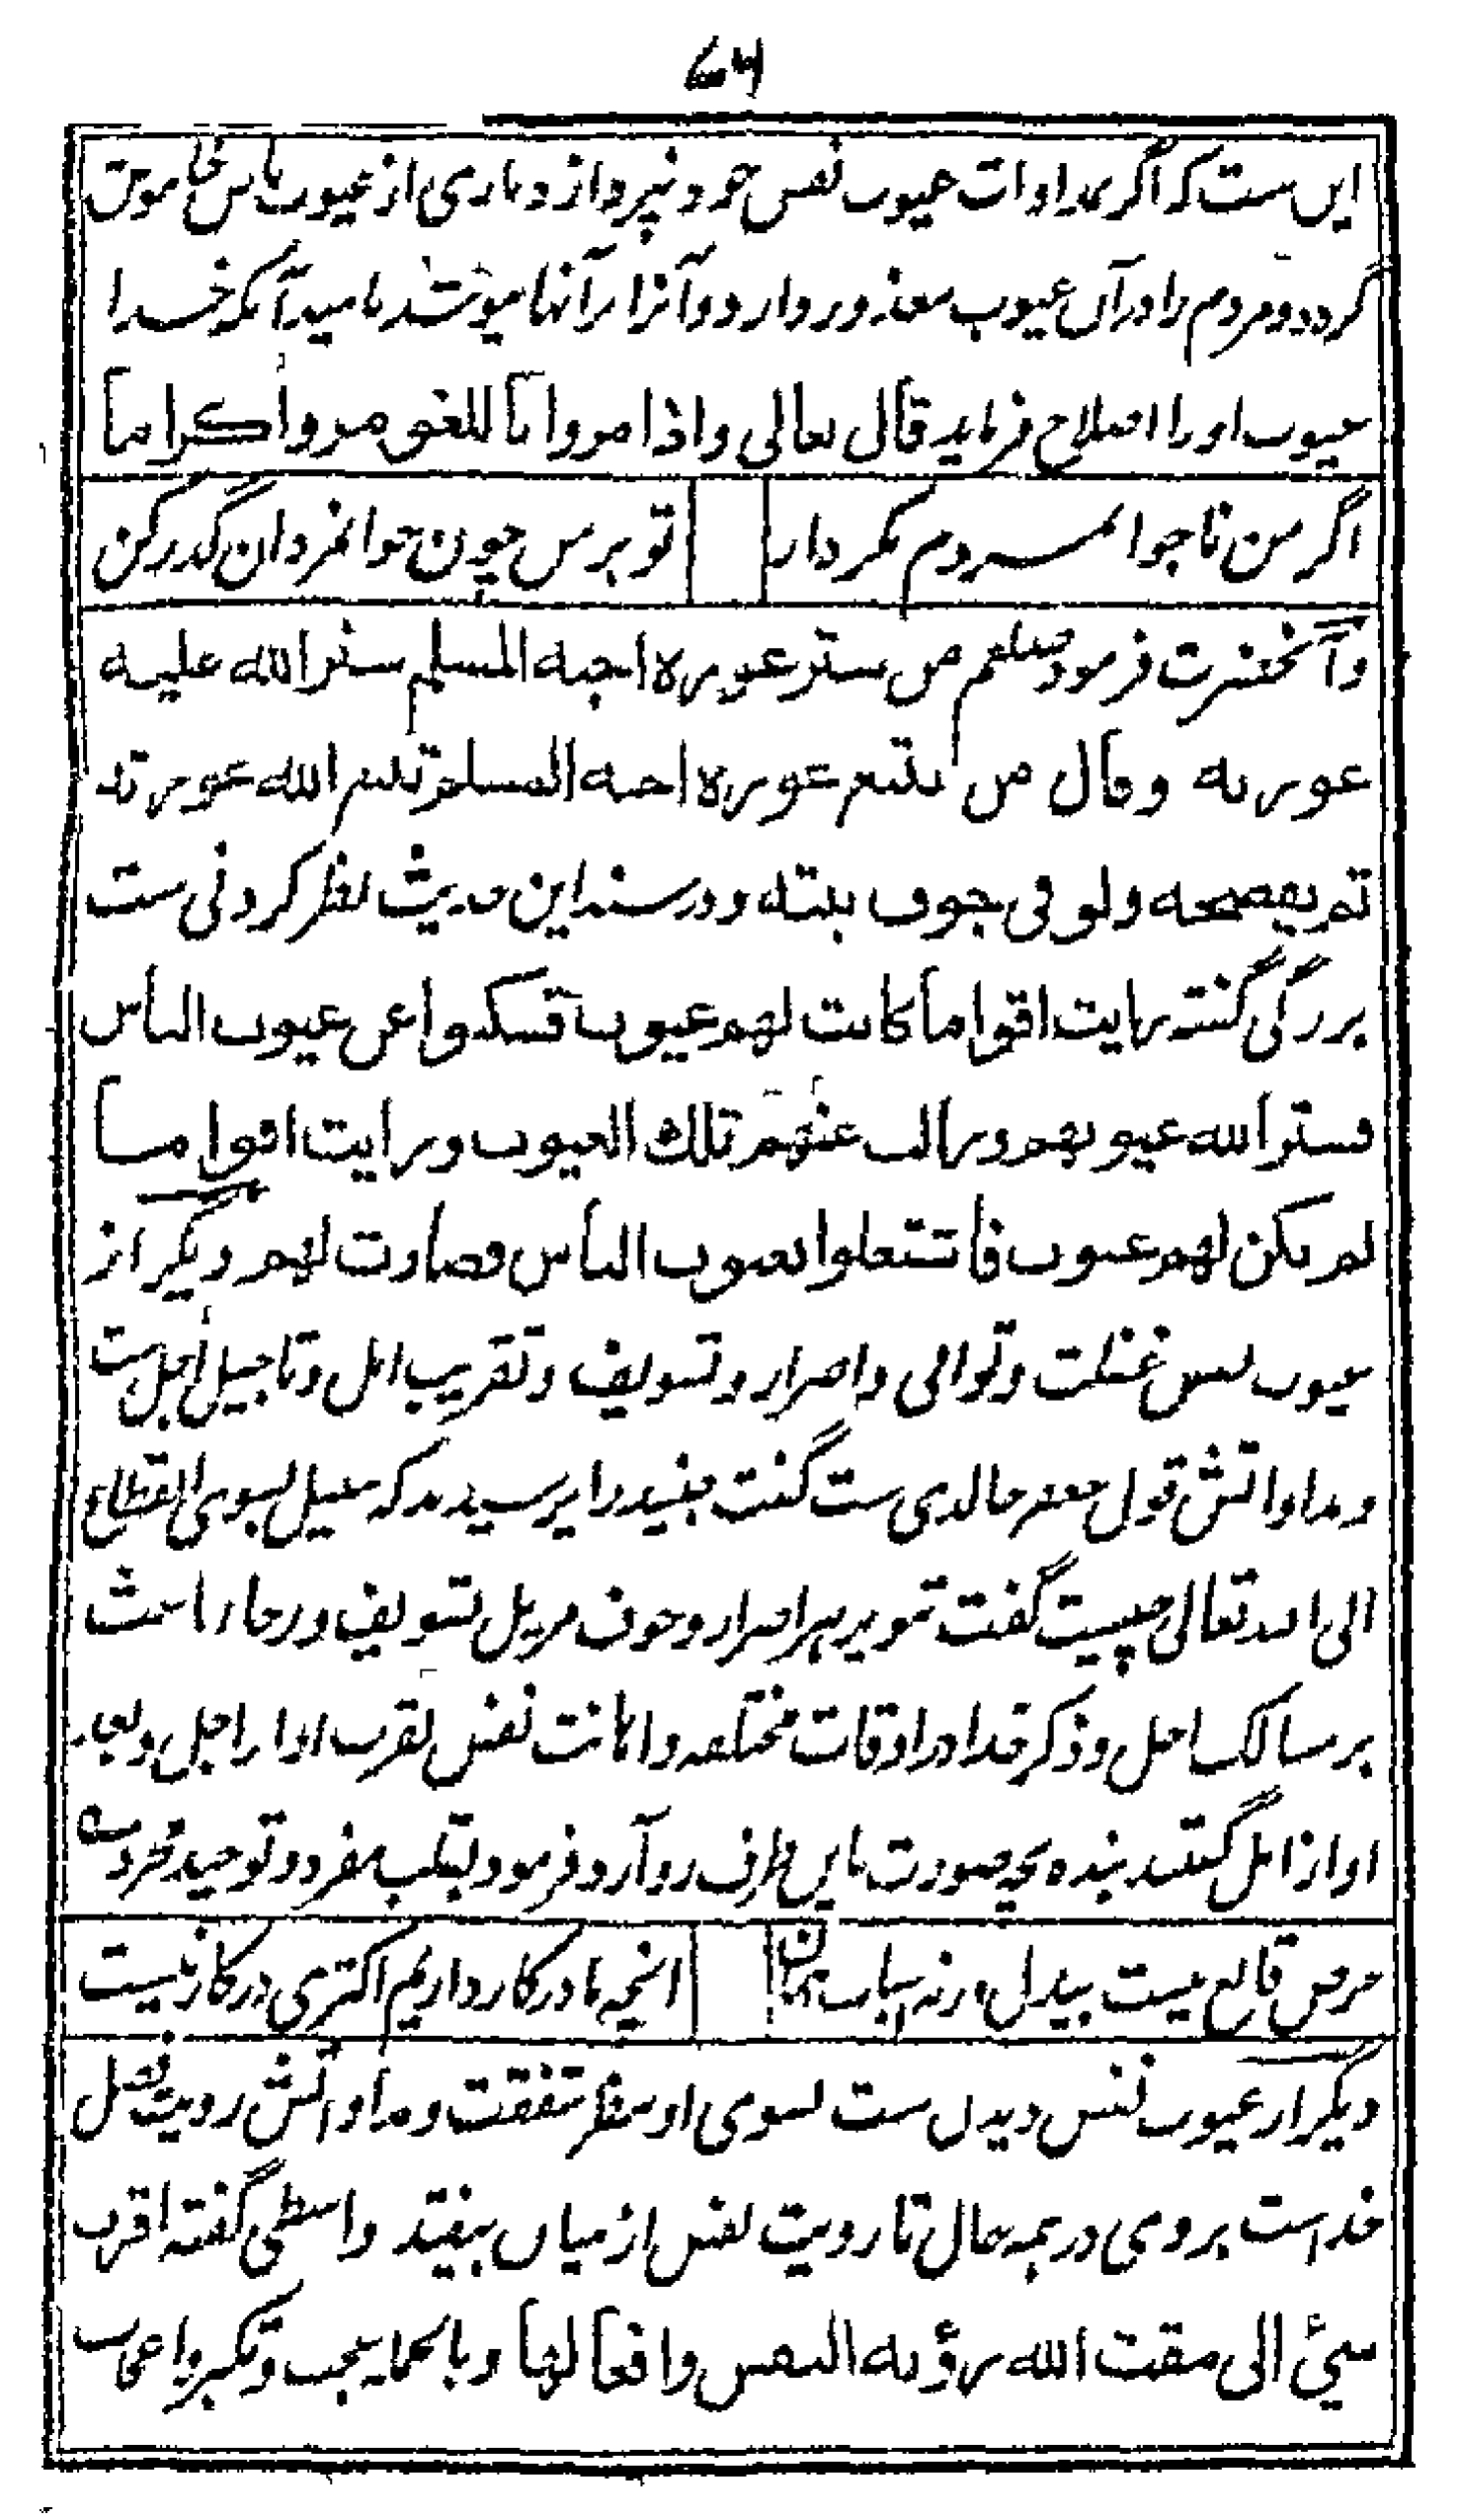 ۷۶
این ست که اگر بمداوات عیوب نفس خود نپردازد باری از عیوب ناس خاموش
گردد و مردم را در آن عیوب معذور دارد و آنرا بر آنها بپوشد بامید آنکه خدا
عیوب او را اصلاح فرماید قال تعالی واذا مروا باللغو مروا کراما
اگر من ناجوانمردم بکردار
تو بر من چون جوانمردان گذر کن
و آنحضرت فرمود صلعم من ستر عورة اخیه المسلم ستر الله علیه
عورته وقال من تتبع عورة اخیه المسلم تتبع الله عورته
ثم یفضحه ولو فی جوف بیته و در سند این حدیث نظر کردنی ست
بزرگی گفته رایت اقواما کانت لهم عیوب فسکتوا عن عیوب الناس
فستر الله عیوبهم وزالت عنهم تلك العیوب ورایت اقواما
لم یکن لهم عیوب فاشتغلوا بعیوب الناس فصارت لهم دیگر از
عیوب نفس غفلت و توانی و اصرار و تسویف و تقریب امل و تاجیل اجل ست
و مداواتش قول جعفر خالدی ست گفت جنید را پرسیدند که سبیل بسوی انقطاع
الی الله تعالی چیست گفت توبه اصرار و خوف مزیل تسویف و رجا باعث
بر مسالک عمل و ذکر خدا در اوقات مختلفه و اهانت نفس بقرب او از اجل و بعد
او از امل گفتند بنده بچه صورت باین طرف رو آرد فرمود بقلب مفرد و توحید مجرد
حرص قانع نیست بیدل ورنه اسباب جهان
انچه ما در کار داریم اکثری در کار نیست
دیگر از عیوب نفس دیدن ست بسوی او بنظر شفقت و مداواتش رویت فضل
خداست بر وی در همه حال تا رویت نفس از میان بیفتد واسطی گفته اقرب
شیء الی مقت الله رؤیة النفس وافعالها و بالجمله عجب و تکبر و اعجاب